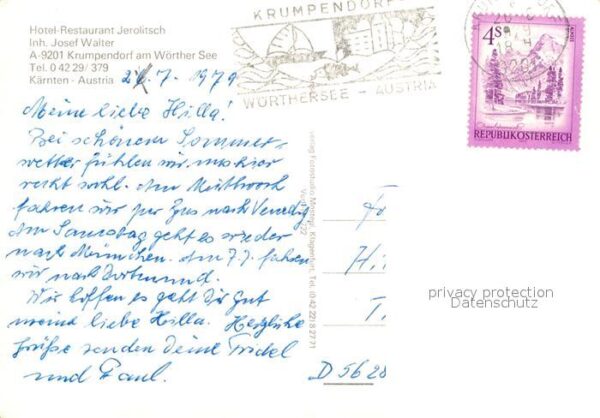 Hotel-Restaurant Jerolitsch
Inh. Josef Walter
A-9201 Krumpendorf am Wörther See
Tel. 0 42 29/ 379
Kärnten - Austria
7. 1979
Meine liebe Hilla!
Bei schönem Sommer-
wetter fühlen wir uns hier
recht wohl. Am Mittwoch
fahren wir per Bus nach Venedig
Am Samstag geht es wieder
nach München. Am 7.7. fahren
wir nach Dortmund.
Wir hoffen es geht Dir gut
meine liebe Hilla. Herzliche
Grüße senden Deine Friedel
und Paul.
KRUMPENDORF
WÖRTHERSEE - AUSTRIA
4S
REPUBLIK ÖSTERREICH
Klagenfurt, Tel. (0 42 22) 8 27 71
Hi
T
D 56 28
privacy protection
Datenschutz